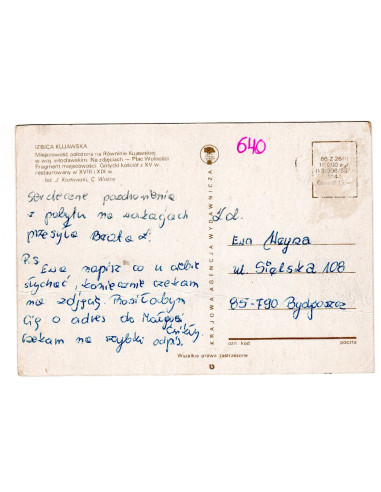 IZBICA KUJAWSKA
Miejscowość położona na Równinie Kujawskiej
w woj. włocławskim. Na zdjęciach — Plac Wolności
Fragment miejscowości. Gotycki kościół z XV w.
restaurowany w XVIII i XIX w.
fot. J. Kozłowski,
Serdeczne pozdrowienia
z pobytu na wakacjach
przesyła Beata
P.S
Ewa, napisz co u ciebie
słychać, koniecznie czekam
na zdjęcia. Prosiłabym
Cię o adres do
Czekam na szybki odpis.
KRAJOWA AGENCJA WYDAWNICZA
640
Ewa
ul. Sielska 108
85-790 Bydgoszcz
ozn kod
poczta
Wszelkie prawa zastrzeżone